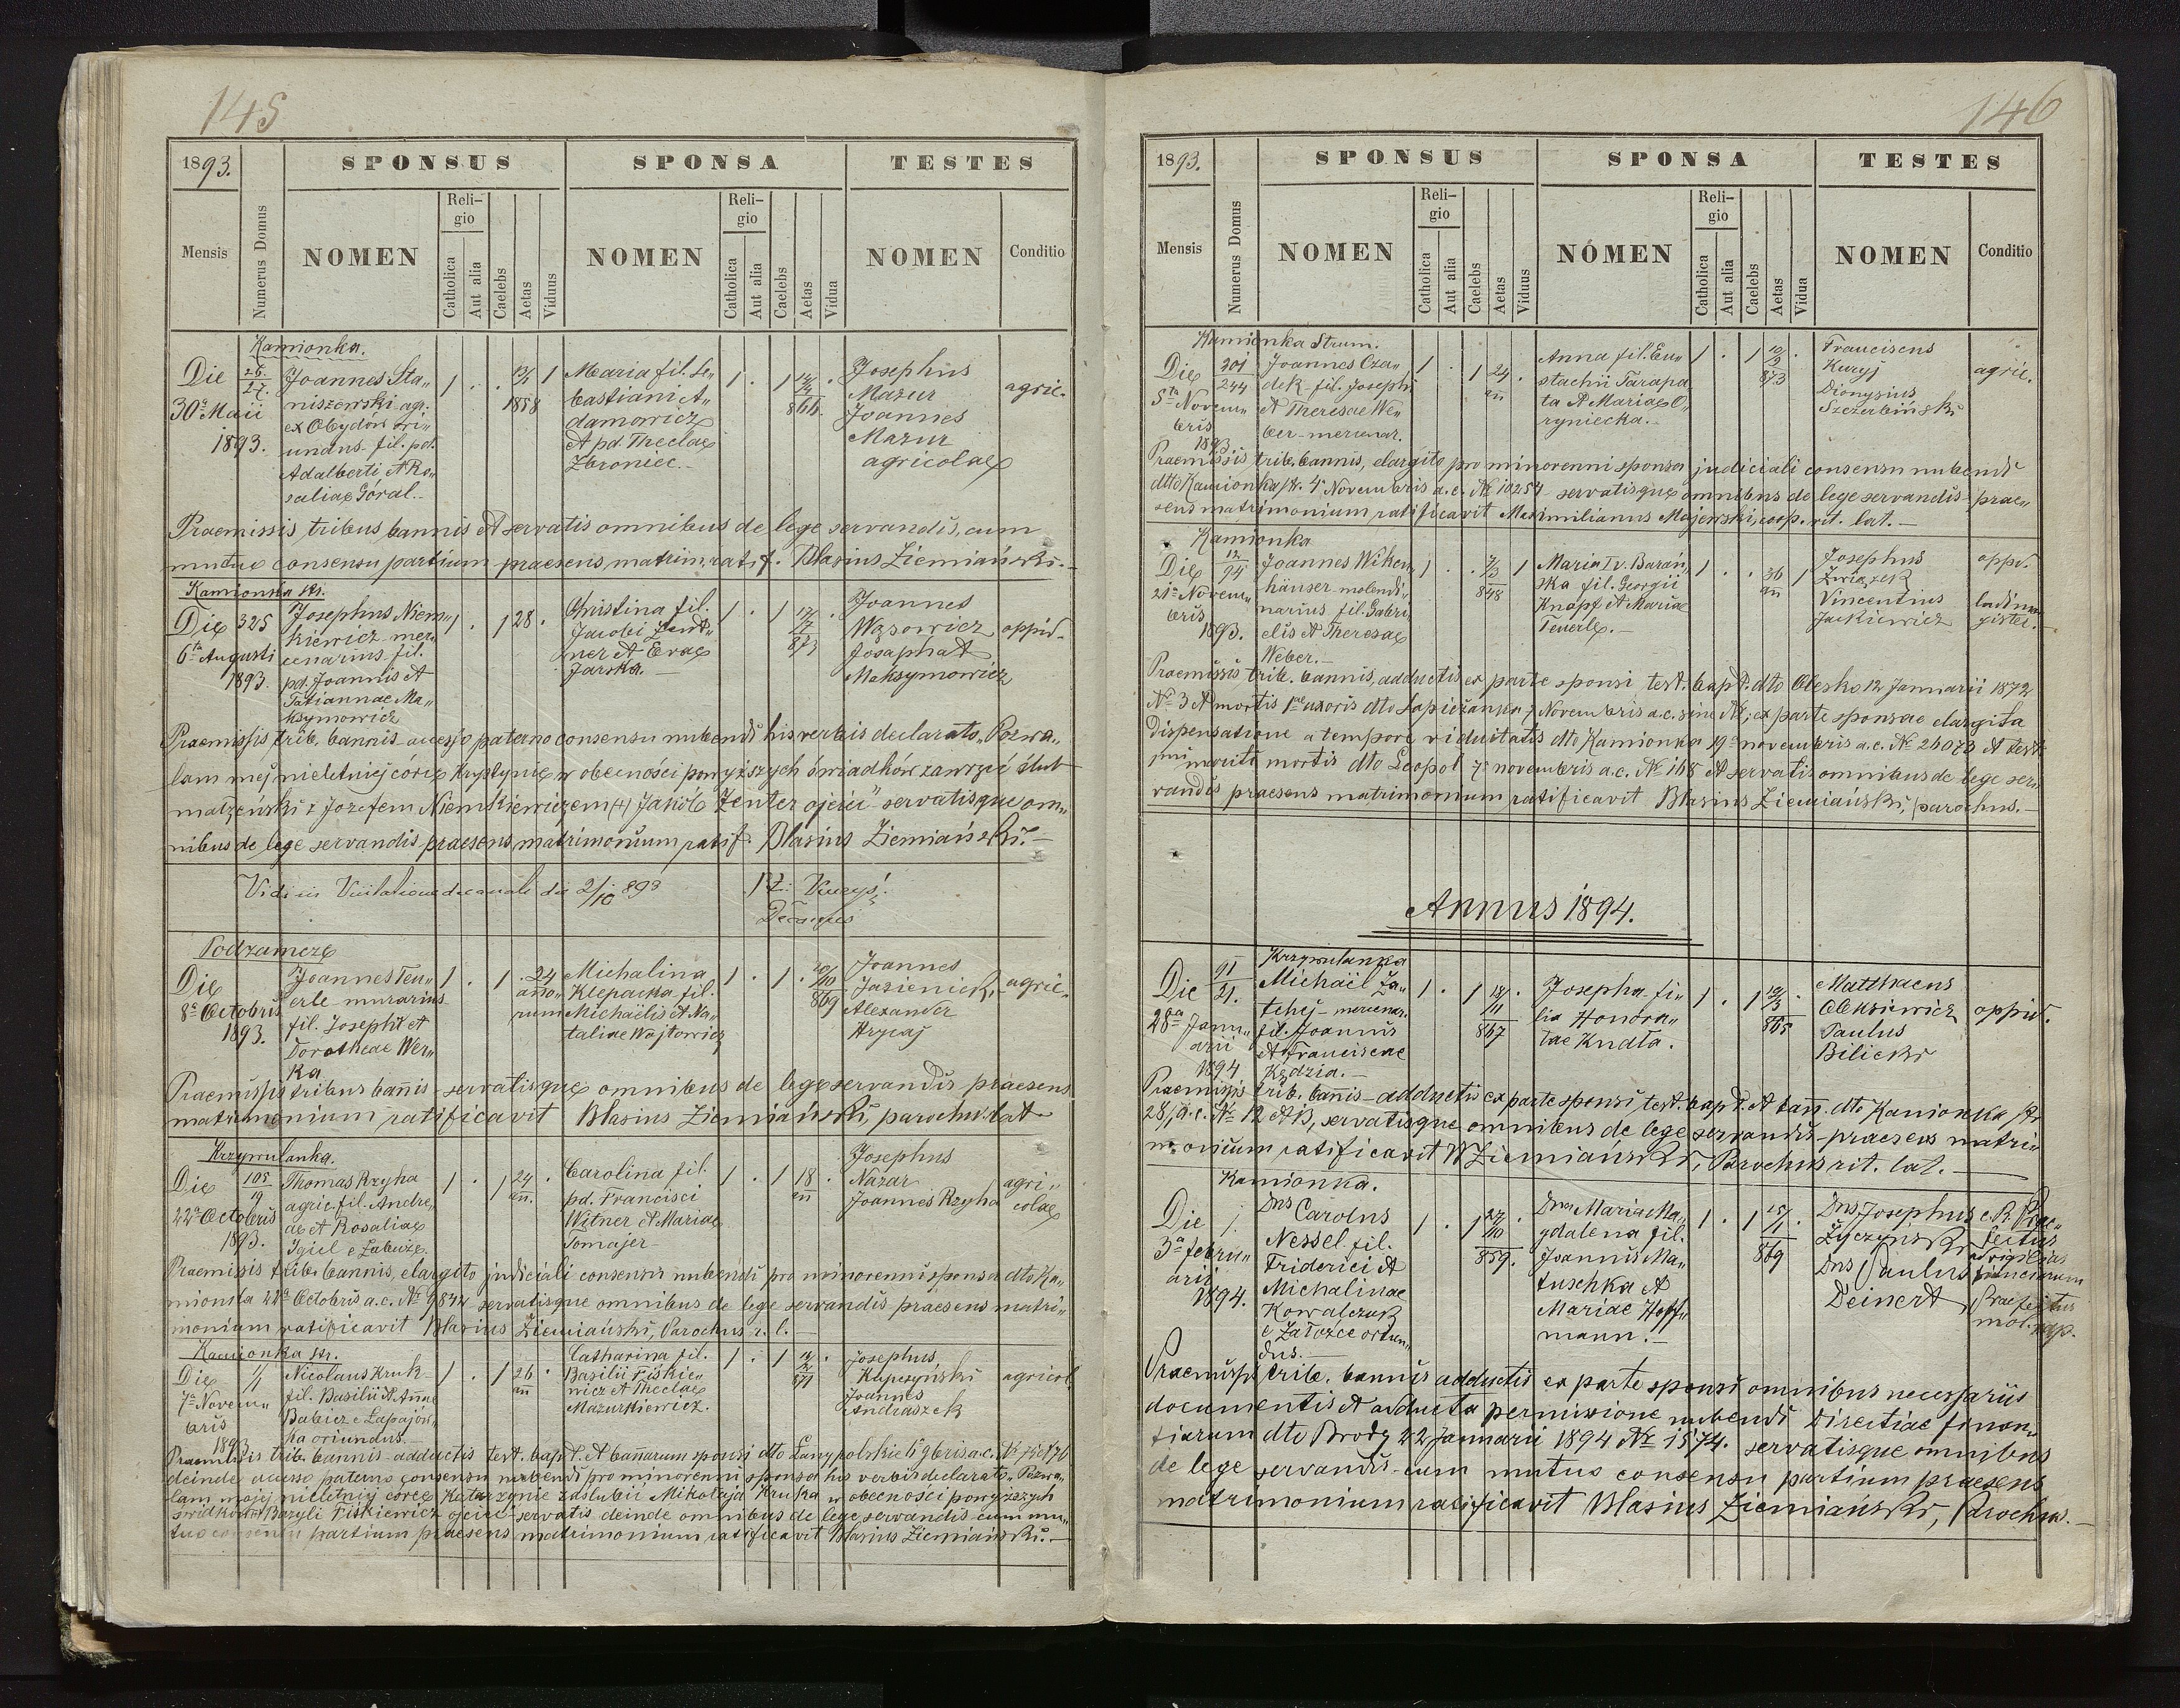 145
1893.
SPONSUS
SPONSA
TESTES
Mensis
Numerus Domus
NOMEN
Religio
Catholica
Aut alia
Caelebs
Aetas
Viduus
NOMEN
Religio
Catholica
Aut alia
Caelebs
Aetas
Vidua
NOMEN
Conditio
Kamionka.
Die
30a Maii
1893.
26.
27.
Joannes Sta„
niszewski agr.
ex Obydów ori„
undus fil. pd.
Adalberti et Ro„
saliae Góral.
1 . . 13/1 1858 1
Maria fil. Se„
bastiani A„
damowicz
et pd. Theclae
Zbroniec.
1 . 1 866 .
Josephus
Mazur
Joannes
Mazur
agricolae
agric.
Praemissis tribus bannis et servatis omnibus de lege servandis, cum
mutuo consensu partium praesens matrim. ratif. Blasius Ziemiański.
Kamionka str.
Die
6ta Augusti
1893.
325
Josephus Niem„
kiewicz mer„
cenarius fil.
pd. Joannis et
Tatiannae Ma„
ksymowicz
1 . 1 28 .
Christina fil.
Jacobi Zent„
ner et Evae
Jarska.
1 . 1 873 .
Joannes
Wąsowicz
Josaphat
Maksymowicz
oppid.
Praemissis trib. bannis accesso paterno consensu nubendi his verbis declarato „Pozwa„
lam mej nieletniej córce Krystynie w obecności powyższych świadków zawrzeć ślub
małżeński z Józefem Niemkiewiczem (+) Jakób Zenter ojciec" servatisque om„
nibus de lege servandis praesens matrimonium ratif. Blasius Ziemiański.
Vidi in Visitatione decanali die 2/10 893
Decanus
Podzamcze
Die
8a Octobris
1893.
Joannes Teu„
erle murarius
fil. Josephi et
Dorotheae Wer„
ka
1 . 1 24 anno„ rum
Michalina
Klepacka fil.
Michaëlis et Na„
taliae Wajtowicz
1 . 1 869
Joannes
Jasienicki
Alexander
Hrycaj
agric.
Praemissis tribus bannis servatisque omnibus de lege servandis praesens
matrimonium ratificavit Blasius Ziemiański, parochus lat
Krzywulanka.
Die
22a Octobris
1893.
105
19
Thomas Rzyha
agric. fil. Andre„
ae et Rosaliae
Igiel e Zabuże.
1 . 1 24 an. .
Carolina fil.
pd. Francisci
Witner et Mariae
Tomajer
1 . 1 18 an
Josephus
Nazar
Joannes Rzyha
agri„
colae
Praemissis trib. bannis, elargito judiciali consensu nubendi pro minorenni sponsa dto Ka„
mionka 22a Octobris a.c. No 9842 servatisque omnibus de lege servandis praesens matri„
monium ratificavit Blasius Ziemiański, Parochus r. l.
Kamionka str.
Die
7a Novem„
bris
1893
1/1
Nicolaus Kruk
fil. Basilii et Annae
Babicz e Łapajów„
ka oriundus.
1 . 1 26 an .
Catharina fil.
Basilii Fiśkie„
wicz et Theclae
Mazurkiewicz.
1 . 1 871 .
Josephus
Kupczyński
Joannes
Andraszek
agricol
Praemissis trib. bannis adductis test. bapt. et bannorum sponsi dto Łany polskie
deinde accesso paterno consensu nubendi pro minorenni sponsa his verbis declarato „Pozwa„
lam mojej nieletniej córce Katarzynie zaślubić Mikołaja Kruka w obecności powyższych
świadków Bazyli Fiśkiewicz ojciec" servatis deinde omnibus de lege servandis cum mu„
tuo consensu partium praesens matrimonium ratificavit Blasius Ziemiański.
146
1893.
SPONSUS
SPONSA
TESTES
Mensis
Numerus Domus
NOMEN
Religio
Catholica
Aut alia
Caelebs
Aetas
Viduus
NÓMEN
Religio
Catholica
Aut alia
Caelebs
Aetas
Vidua
NOMEN
Conditio
Kamionka Strum.
Die
5ta Novem„
bris
1893.
301
244
Joannes Cza„
dek fil. Josephi
et Theresae We„
ber mercenar.
1 . 1 24 an .
Anna fil. Eu„
stachii Tarapa
ta et Mariae O„
ryniecka.
1 . 1 10/3 873 .
Franciscus
Kuryj
Dionysius
Szczerbiński
agric.
Praemissis trib. bannis, elargito pro minorenni sponsa judiciali consensu nubendi
dtto Kamionka str. 4a Novembris a.c. No 10254 servatisque omnibus de lege servandis prae„
sens matrimonium ratificavit Maximilianus Majewski, coop. rit. lat.
Kamionka
Die
21a Novem„
bris
1893.
12
94
Joannes Wiken„
häuser molendi„
narius fil. Gabri„
elis et Theresae
Weber.
1 . . 7/3 848 1
Maria Iv. Barań„
ska fil. Georgii
Knapf et Mariae
Teuerle.
1 . . 36 an 1
Josephus
Związek
Vincentius
Jackiewicz
oppid.
ludima„
gister.
Praemissis trib. bannis, adductis ex parte sponsi test. bapt. dto Olesko 12 Januarii 1872
No 3 et mortis 1ae uxoris dto Sapieżanka 7 Novembris a.c. sine No; ex parte sponsae elargita
dispensatione a tempore viduitatis dto Kamionka 19a novembris a.c. No 26073 et test.
mariti mortis dto Leopol 7a novembris a.c. No 168 et servatis omnibus de lege ser„
vandis praesens matrimonium ratificavit Blasius Ziemiański, parochus.
Annus 1894.
Krzywulanka
Die
28a Janu„
arii
1894
91
21.
Michaël Za„
tchej mercenar.
fil. Joannis
et Franciscae
Kędzia.
1 . 1 18/11 867 .
Josepha fi„
lia Honora„
tae Kudła.
1 . 1 868 .
Matthaeus
Oleksiewicz
Paulus
Bilicki
oppid.
Praemissis trib. bannis adductis ex parte sponsi test. bapt. et bann. dto Kamionka str
28/1 a.c. No 12 et 13, servatisque omnibus de lege servandis praesens matri„
monium ratificavit B Ziemiański, Parochus rit. lat.
Kamionka.
Die
3a febru„
arii
1894.
Dns Carolus
Nessel fil.
Friderici et
Michalinae
Kowalczuk
e Załoźce oriun„
dus.
1 . 1 27/10 859. .
Dna Maria Ma„
gdalena fil.
Joannis Ma„
tuschka et
Mariae Hoff„
mann.
1 . 1 869 .
Dns Josephus
Życzyński
Dns Paulus
Deinert
c. R. Prae„
fectus
Praefectus
Praemissis trib. bannis adductis ex parte sponsi omnibus necessariis
documentis et adducta permissione nubendi Directiae finan„
tiarum dto Brody 22 Januarii 1894 No 1574. servatisque omnibus
de lege servandis cum mutuo consensu partium praesens
matrimonium ratificavit Blasius Ziemiański, Parochus.